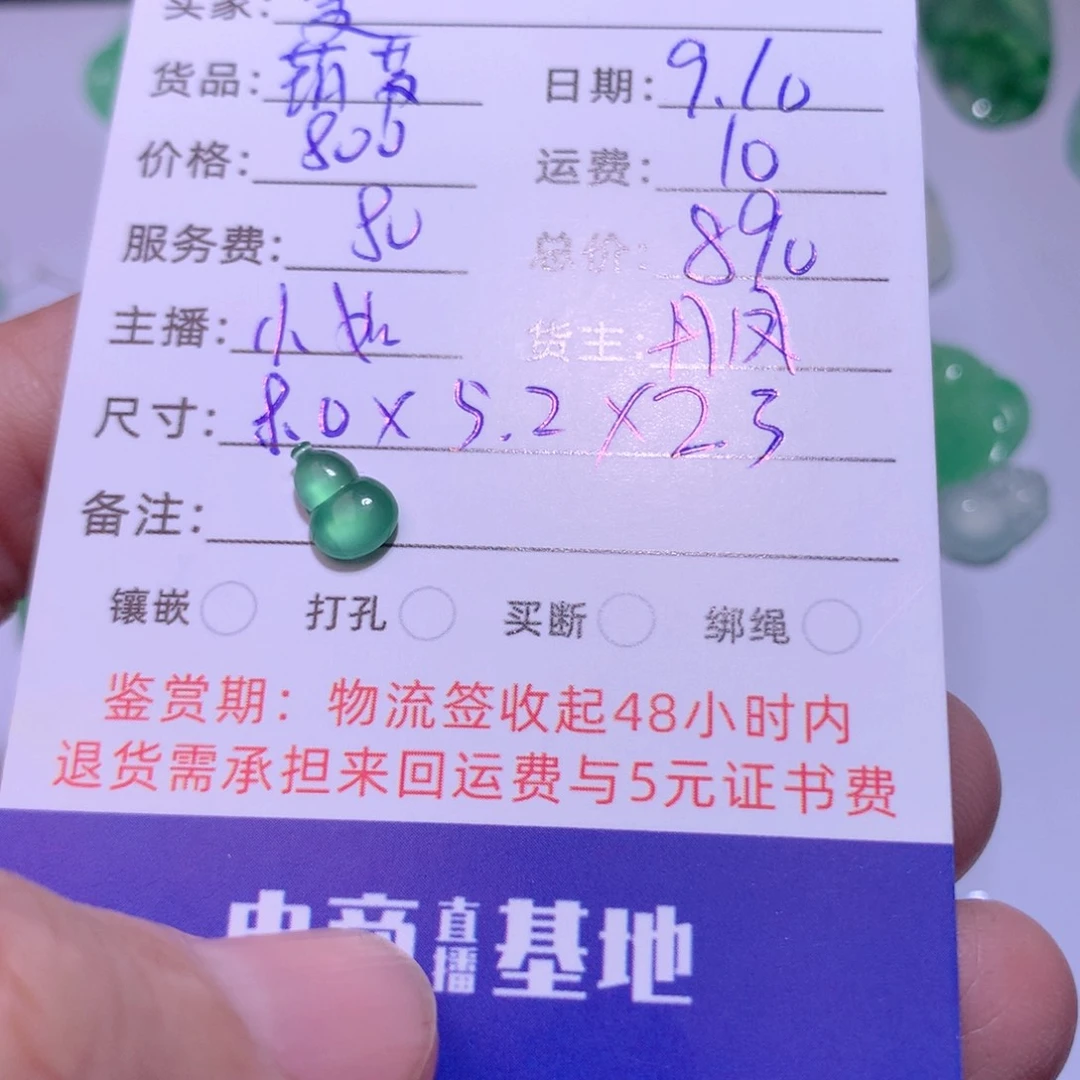 买家：
货品：葫芦 日期：9.10
价格：800 运费：10
服务费：80 总价：890
主播：小如 货主：丹凤
尺寸：8.0×5.2×2.3
备注：
镶嵌 打孔 买断 绑绳
鉴赏期：物流签收起48小时内
退货需承担来回运费与5元证书费
电商直播基地